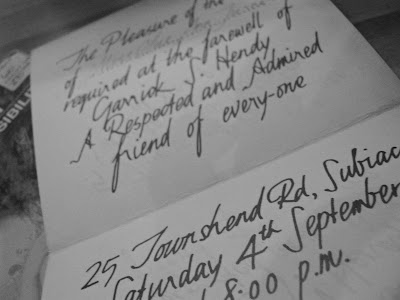 The Pleasure of the
of
required at the farewell of
Garrick S. Hendy
A Respected and Admired
friend of every-one
25 Townshend Rd, Subiac
Saturday 4th September
8:00 p.m.
SIBIL